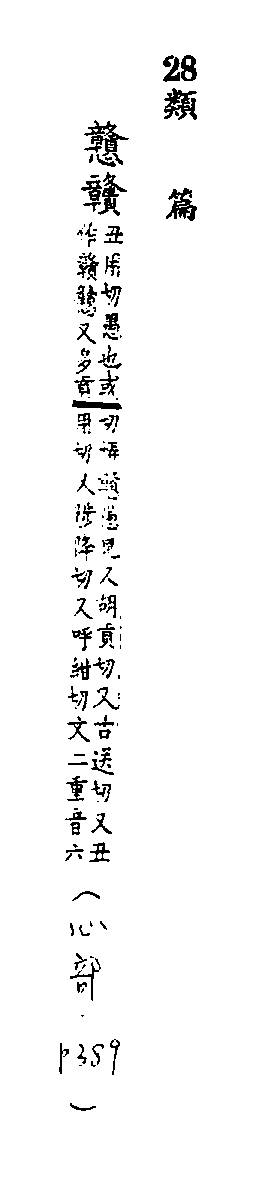 28類 篇
戇贛
丑用切愚也或
作贛戇又多貢
切贛愚皃又胡貢切又古送切又丑
用切又陟降切又呼紺切文二重音六
（心部．p389）